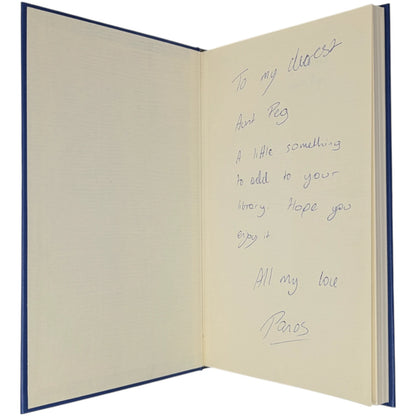 To my dearest
Aunt Peg
A little something
to add to your
library. Hope you
enjoy it
All my love
Paros